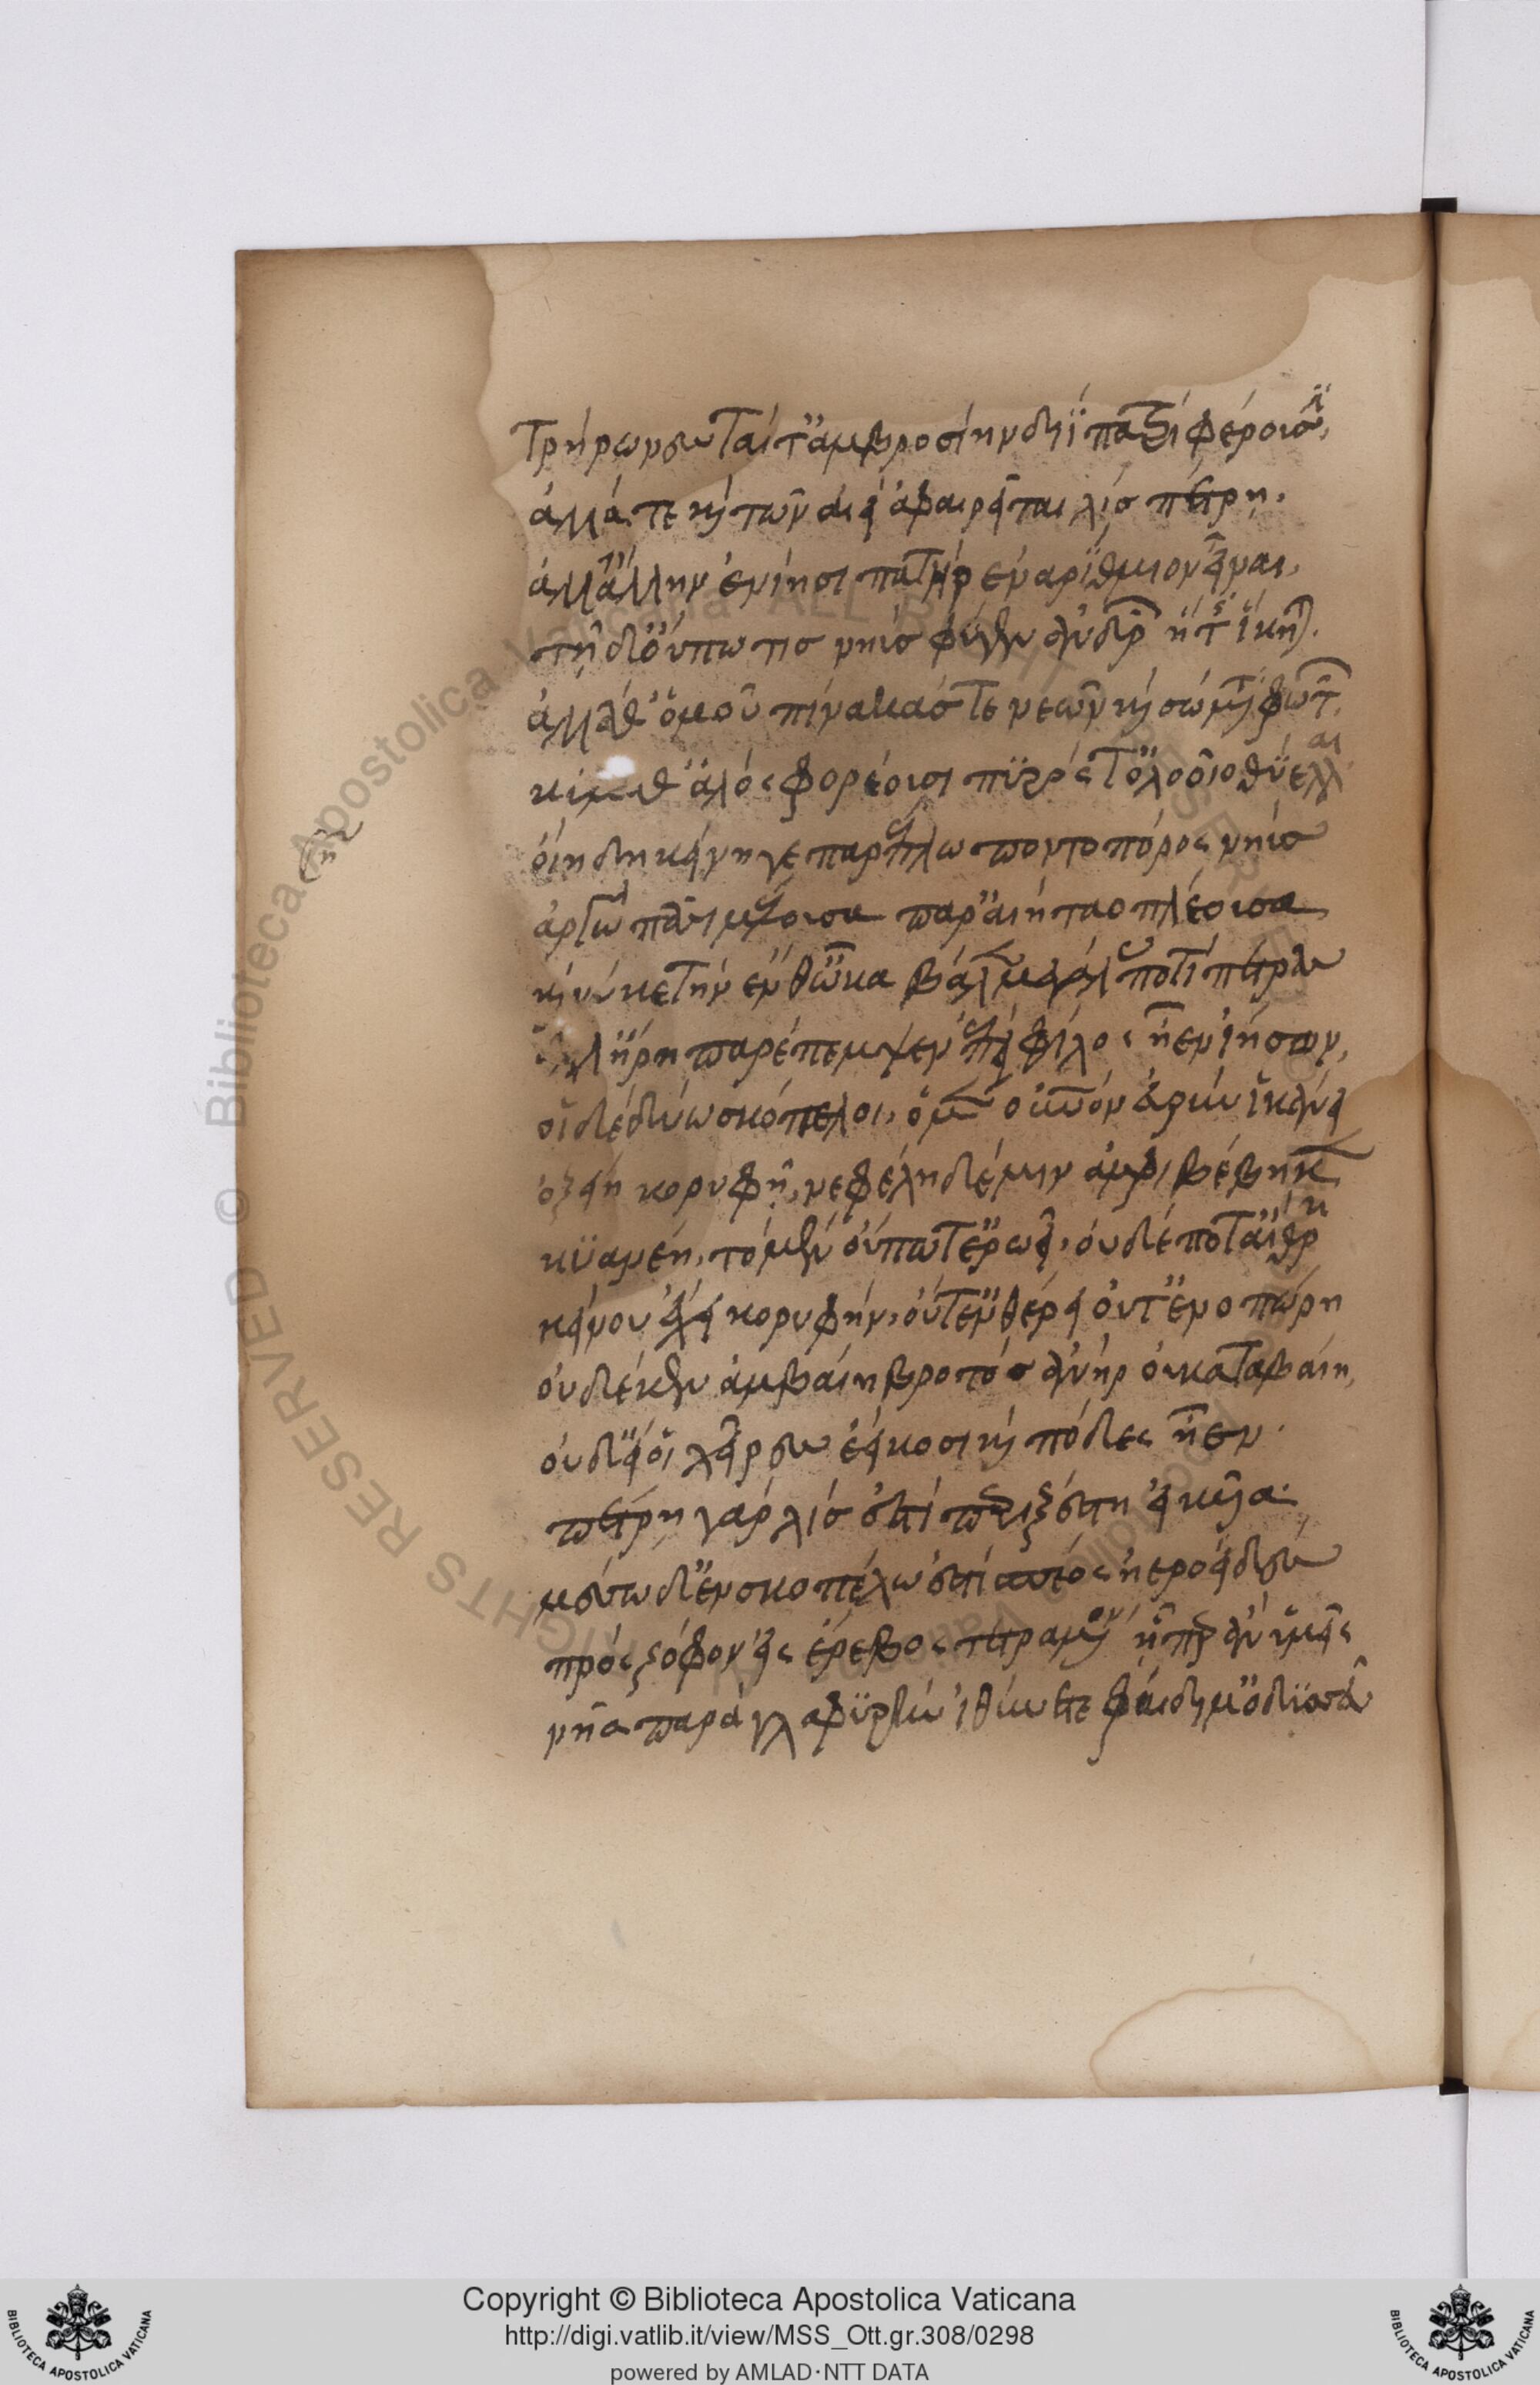 τρήρωνες ταί τ' ἀμβροσίην διῒ πατρὶ φέρουσιν,
ἀλλά τε καὶ τῶν αἰεὶ ἀφαιρεῖται λὶσ πέτρη.
ἀλλ' ἄλλην ἐνίησι πατὴρ ἐναρίθμιον εἶναι.
τῇ δ' οὔπω τισ νηῦσ φύγεν ἀνδρῶν ἥτις ἵκηται.
ἀλλά θ' ὁμοῦ πίνακάσ τε νεῶν καὶ σώματα φωτῶν
κύμαθ' ἁλὸς φορέουσι πυρός τ' ὀλοοῖο θύελλαι
οἴη δὴ κείνη γε παρέπλω ποντοπόρος νηῦσ
ἀργὼ πᾶσι μέλουσα παρ' αἰήταο πλέουσα
καί νύ κε τὴν ἔνθ' ὦκα βάλεν μεγάλας ποτὶ πέτρας
ἀλλ' ἥρη παρέπεμψεν ἐπεὶ φίλος ἦεν ἰήσων,
οἱ δὲ δύω σκόπελοι, ὁ μὲν οὐρανὸν εὐρὺν ἱκάνει
ὀξείη κορυφῇ, νεφέλη δέ μιν ἀμφιβέβηκε
κυανέη, τὸ μὲν οὔποτ' ἐρωεῖ, οὐδέ ποτ' αἴθρη
κείνου ἔχει κορυφήν, οὔτ' ἐν θέρει οὔτ' ἐν ὀπώρη
οὐδέ κεν ἀμβαίη βροτὸσ ἀνὴρ οὐ καταβαίη,
οὐδ' εἴ οἱ χεῖρες ἐείκοσι καὶ πόδες ἦεν.
πέτρη γὰρ λίσ ἐστὶ περιξέστη εἰκυῖα.
μέσσω δ' ἐν σκοπέλω ἐστὶ σπέος ἠεροειδὲς
πρὸς ζόφον εἰς ἔρεβος τετραμμένον ᾗπερ ἂν ὑμεῖς
νῆα παρὰ γλαφυρὴν ἰθύνετε φαίδιμ' ὀδυσσεῦ
Copyright © Biblioteca Apostolica Vaticana
http://digi.vatlib.it/view/MSS_Ott.gr.308/0298
powered by AMLAD·NTT DATA